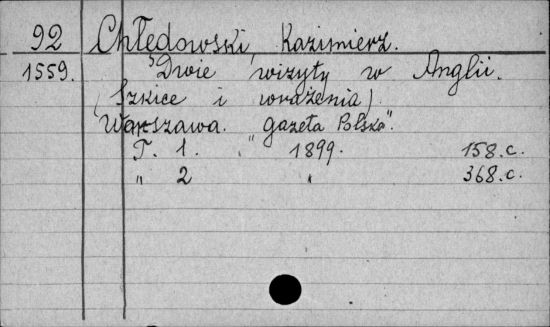 92 Chłędowski, Kazimierz.
1559. Dwie wizyty w Anglii.
(Szkice i wrażenia)
Warszawa. "gazeta Polska".
T. 1. 1899. 158.c.
" 2 " 368.c.